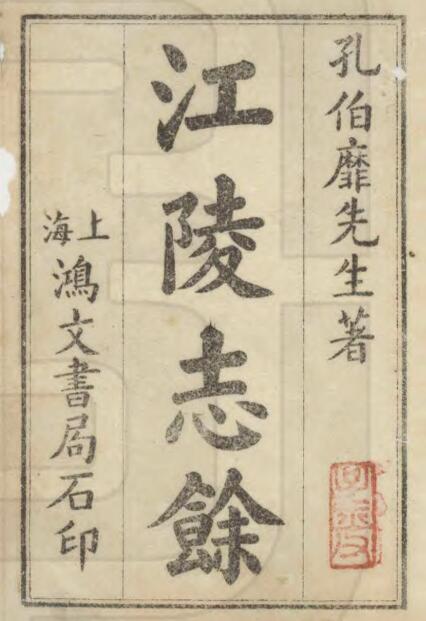 孔伯靡先生著
江陵志餘
上海鴻文書局石印